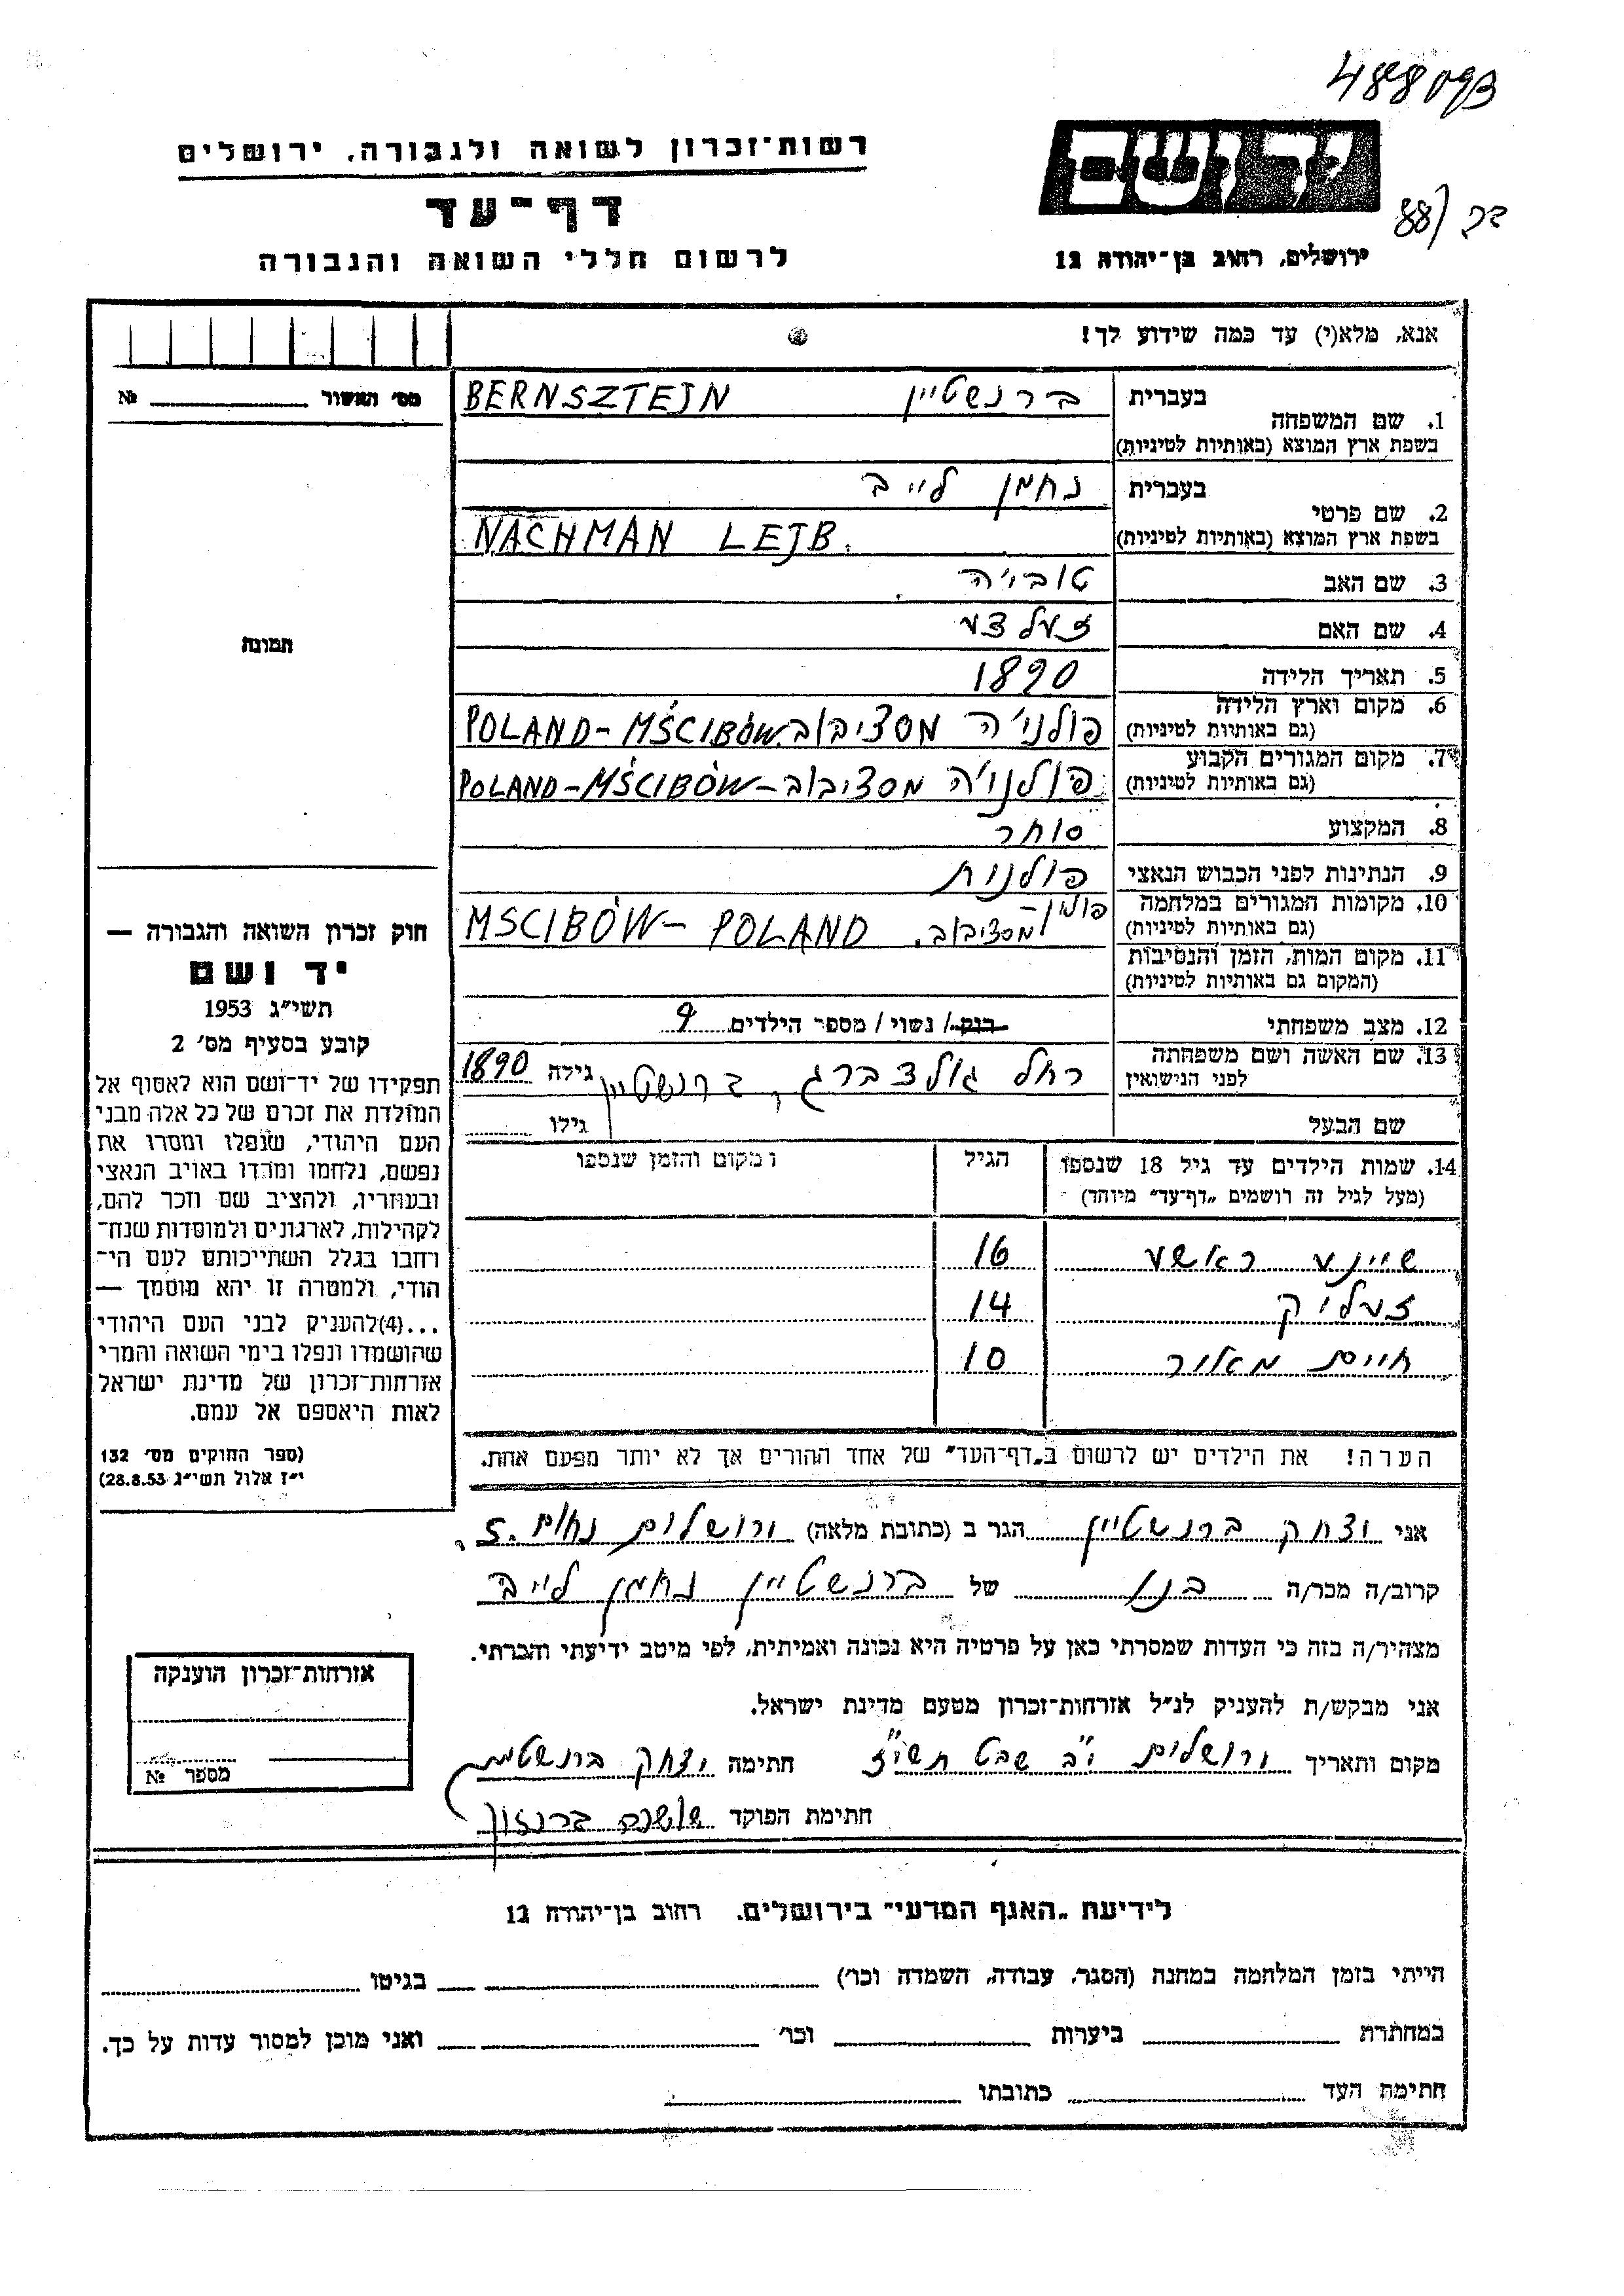 488093
רשות־זכרון לשואה ולגבורה, ירושלים
ידושם
דף־עד
לרשום חללי השואה והגבורה
ירושלים, רחוב בן־יהודה 12
88/
אנא, מלא(י) עד כמה שידוע לך!
מס׳ האשור №
1. שם המשפחה בעברית ברנשטיין BERNSZTEJN
בשפת ארץ המוצא (באותיות לטיניות)
2. שם פרטי בעברית נחמן לייב
בשפת ארץ המוצא (באותיות לטיניות) NACHMAN LEJB.
3. שם האב טוביה
4. שם האם זעלדע
5. תאריך הלידה 1890
6. מקום וארץ הלידה (גם באותיות לטיניות) פולני'ה מסציבוב POLAND-MŚCIBÓW
7. מקום המגורים הקבוע (גם באותיות לטיניות) פולני'ה מסציבוב- POLAND-MŚCIBÓW
8. המקצוע סוחר
9. הנתינות לפני הכבוש הנאצי פולנית
10. מקומות המגורים במלחמה (גם באותיות לטיניות) פולין- מסציבוב. MSCIBÓW- POLAND
11. מקום המות, הזמן והנסיבות
(המקום גם באותיות לטיניות)
12. מצב משפחתי רוק/ נשוי/ מספר הילדים 9
13. שם האשה ושם משפחתה לפני הנישואין רחל גולדברג, ברנשטיין גילה 1890
שם הבעל גילו
14. שמות הילדים עד גיל 18 שנספו הגיל ומקום והזמן שנספו
(מעל לגיל זה רושמים „דף־עד” מיוחד)
שיינע ראשע 16
זעליק 14
חיים מאיר 10
הערה! את הילדים יש לרשום ב„דף־העד” של אחד ההורים אך לא יותר מפעם אחת.
תמונה
חוק זכרון השואה והגבורה —
יד ושם
תשי״ג 1953
קובע בסעיף מס׳ 2
תפקידו של יד־ושם הוא לאסוף אל
המולדת את זכרם של כל אלה מבני
העם היהודי, שנפלו ומסרו את
נפשם, נלחמו ומרדו באויב הנאצי
ובעוזריו, ולהציב שם וזכר להם,
לקהילות, לארגונים ולמוסדות שנח־
רחבו בגלל השתייכותם לעם הי־
הודי, ולמטרה זו יהא מוסמך —
...(4)להעניק לבני העם היהודי
שהושמדו ונפלו בימי השואה והמרי
אזרחות־זכרון של מדינת ישראל
לאות היאספם אל עמם.
(ספר החוקים מס׳ 132
י״ז אלול תשי״ג 28.8.53)
אני יצחק ברנשטיין הגר ב (כתובת מלאה) ירושלים
קרוב/ה מכר/ה בנו של ברנשטיין נחמן לייב
מצהיר/ה בזה כי העדות שמסרתי כאן על פרטיה היא נכונה ואמיתית, לפי מיטב ידיעתי והכרתי.
אני מבקש/ת להעניק לנ״ל אזרחות־זכרון מטעם מדינת ישראל.
מקום ותאריך ירושלים י"ב שבט תשי"ז חתימה יצחק ברנשטיין
חתימת הפוקד
אזרחות־זכרון הוענקה
מספר №
לידיעת „האגף המדעי” בירושלים, רחוב בן־יהודה 12
הייתי בזמן המלחמה במחנה (הסגר, עבודה, השמדה וכו׳) בגיטו
במחתרת ביערות וכו׳ ואני מוכן למסור עדות על כך.
חתימת העד כתובתו